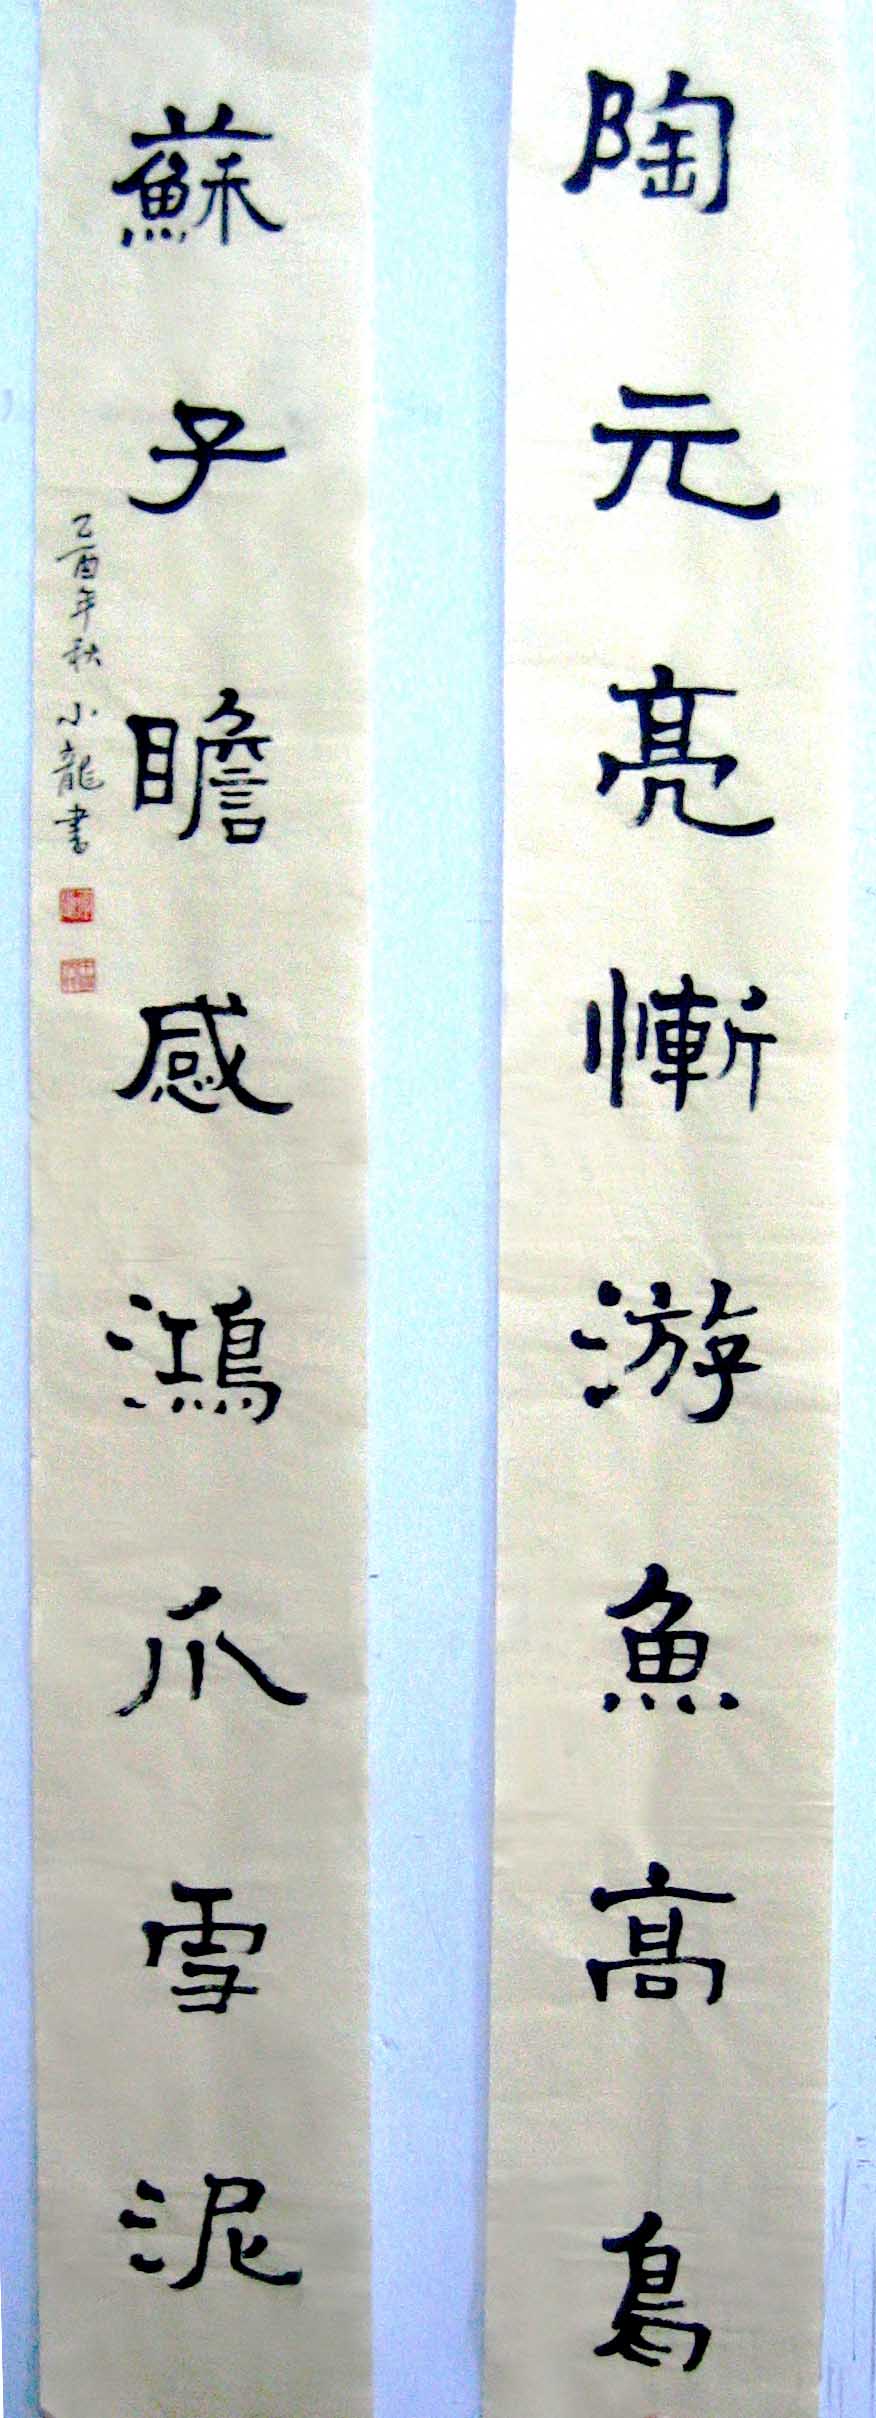 陶元亮慚游魚高鳥
蘇子瞻感鴻爪雪泥
乙酉年秋小龍書